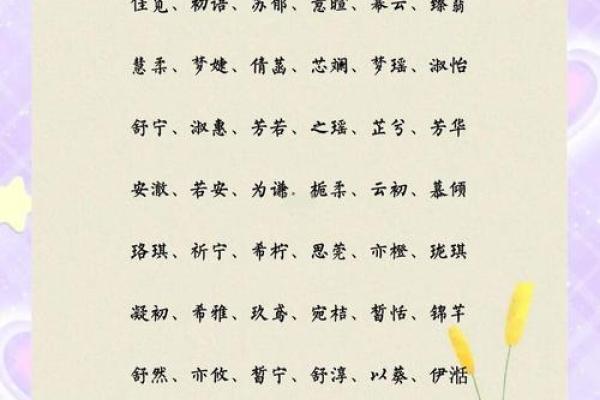 佳觅、初语、苏郁、意暄、幂云、臻翡
慧柔、梦婕、倩菡、芯斓、梦瑶、淑怡
舒宁、淑惠、芳若、之瑶、芷兮、芳华
安澈、若安、为谦、栀柔、云初、慕倾
珞琪、祈宁、希柠、思莞、亦橙、珑琪
凝初、希雅、玖鸢、宛桔、皙恬、锦芊
舒然、亦攸、皙宁、舒淳、以葵、伊湉